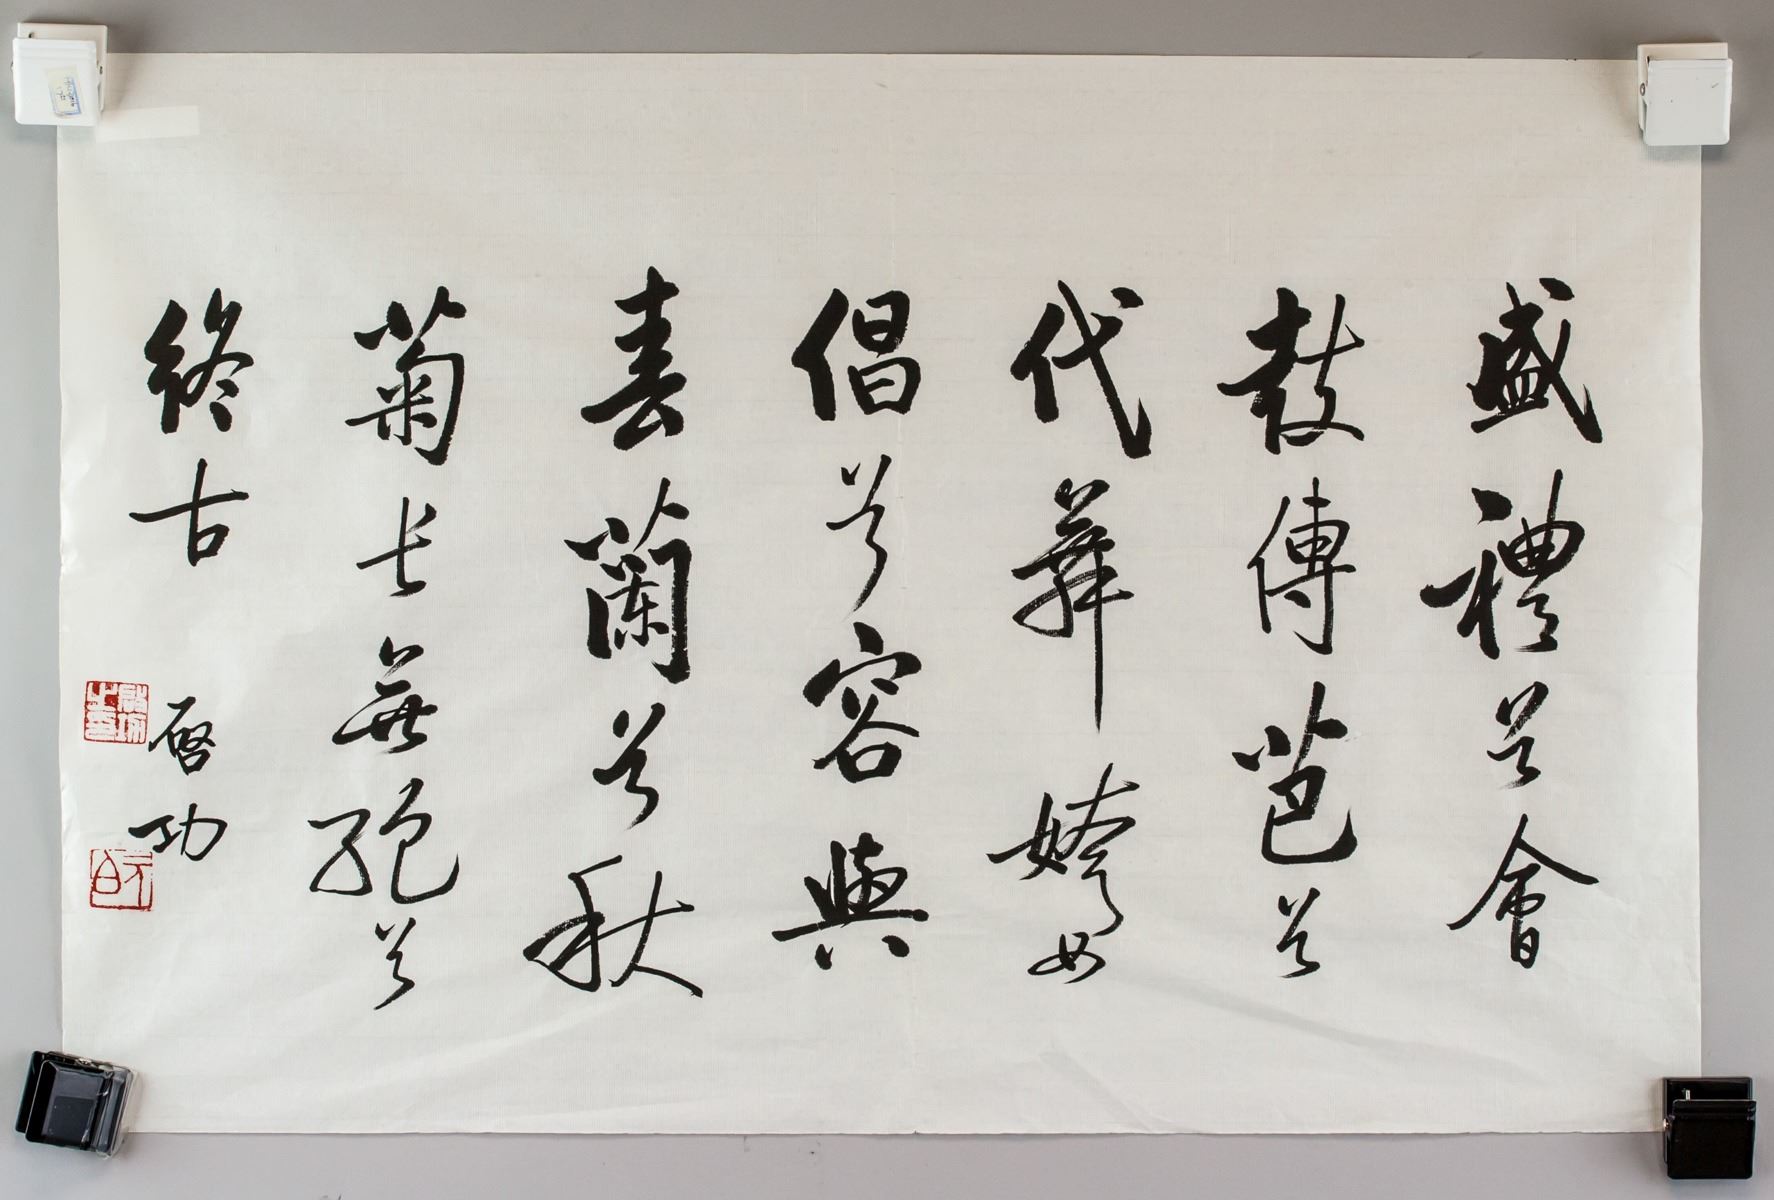 盛禮兮會
鼓傳芭兮
代舞姱女
倡兮容與
春蘭兮秋
菊長無絕兮
終古
啓功
啓功之印
元白